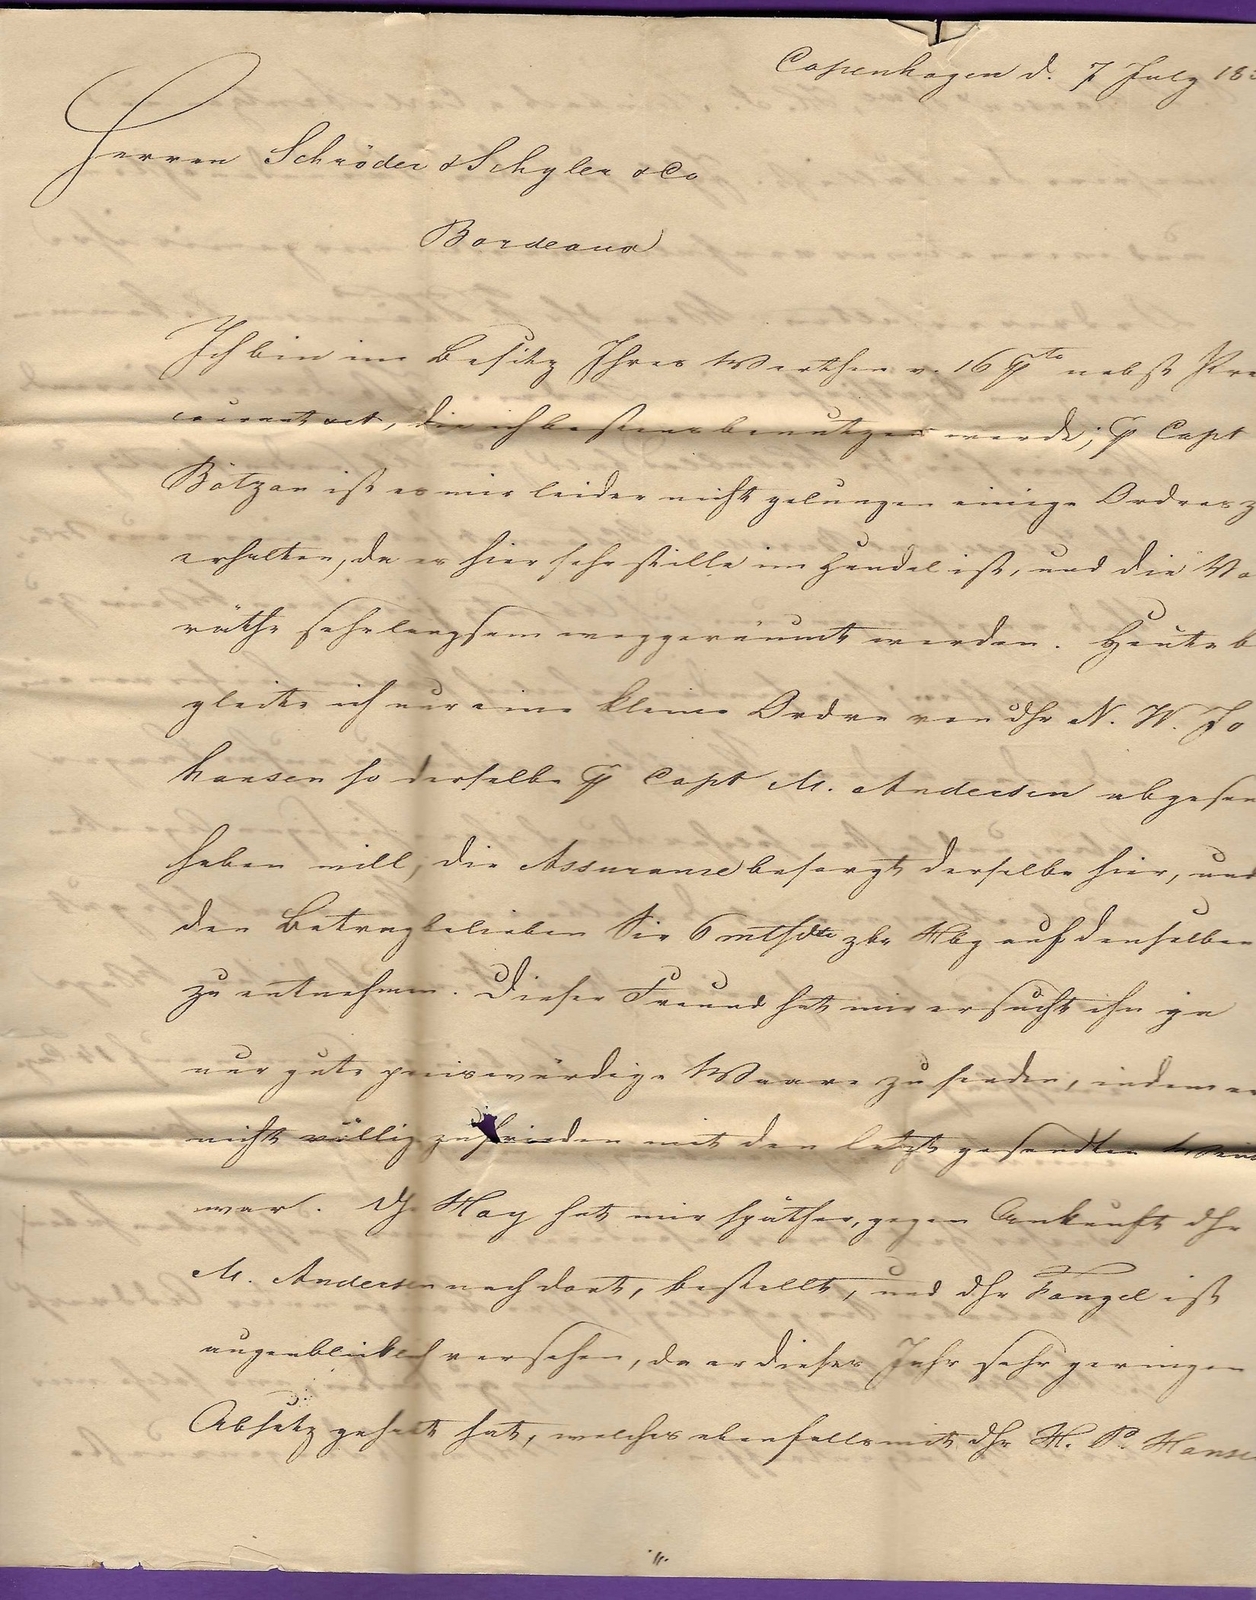 Copenhagen d. 7 July 18
Herren Schröder & Schyler & Co
Bordeaux
Ich bin im Besitz Ihres Werthen v. 16 nebst Pre
courant &ct, die ich bestens benutzen werde; Capt
Bötzon ist es mir leider nicht gelungen einige Ordres z
erhalten, da es hier sehr stille im Handel ist, und die Vo
räthe sehr langsam weggeräumt werden. Heute b
gleite ich nur eine kleine Ordre von dhr N. W. Jo
hansen so derselbe Capt M. Andersen abgesen
haben will, die Assurance besorgt derselbe hier, und
den Betrag belieben Sie 6 mthdto Hbg auf denselben
zu entnehmen. Dieser Freund hat mir ersucht ihn ja
nur gute preiswürdige Waare zu senden, indem er
nicht völlig zufrieden mit den letzt gesendten Wein
war. Dh Hay hat mir später, gegen Ankunft dhr
M. Andersen nach dort, bestellt, und dhr Fangel ist
augenblicklich versehen, da er dieses Jahr sehr geringen
Absatz gehabt hat, welches ebenfalls mit dhr H. P. Hanse